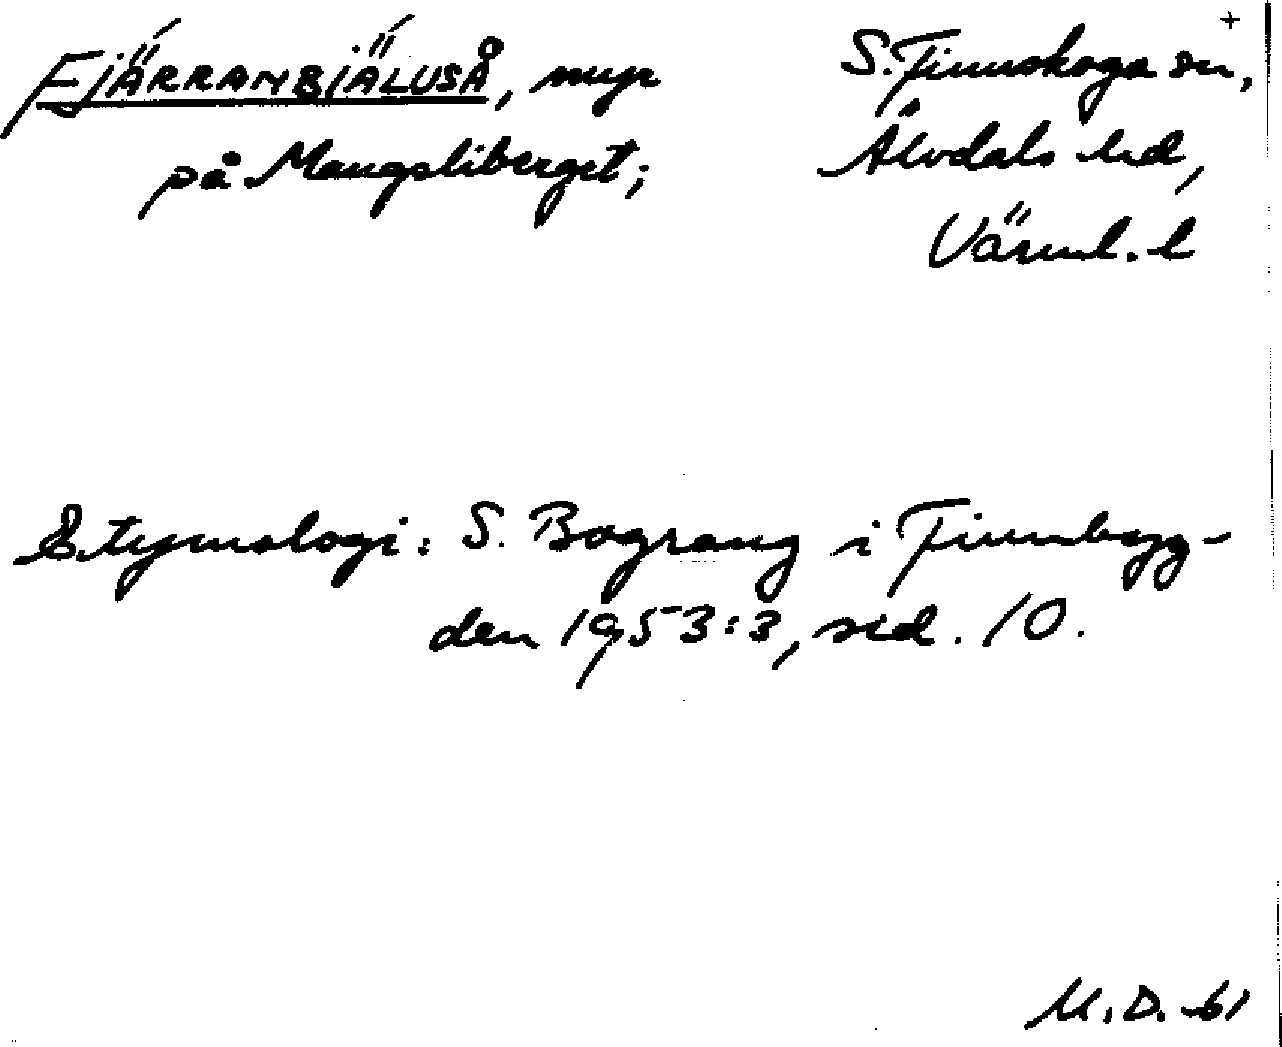 FJÄRRANBIÄLUSÅ, myr
på Mangsliberget;
S. Finnskoga sn,
Älvdals hd,
Värml. l
Etymologi: S. Bograng i Finnbygg-
den 1953:3, sid. 10.
M.D. -61